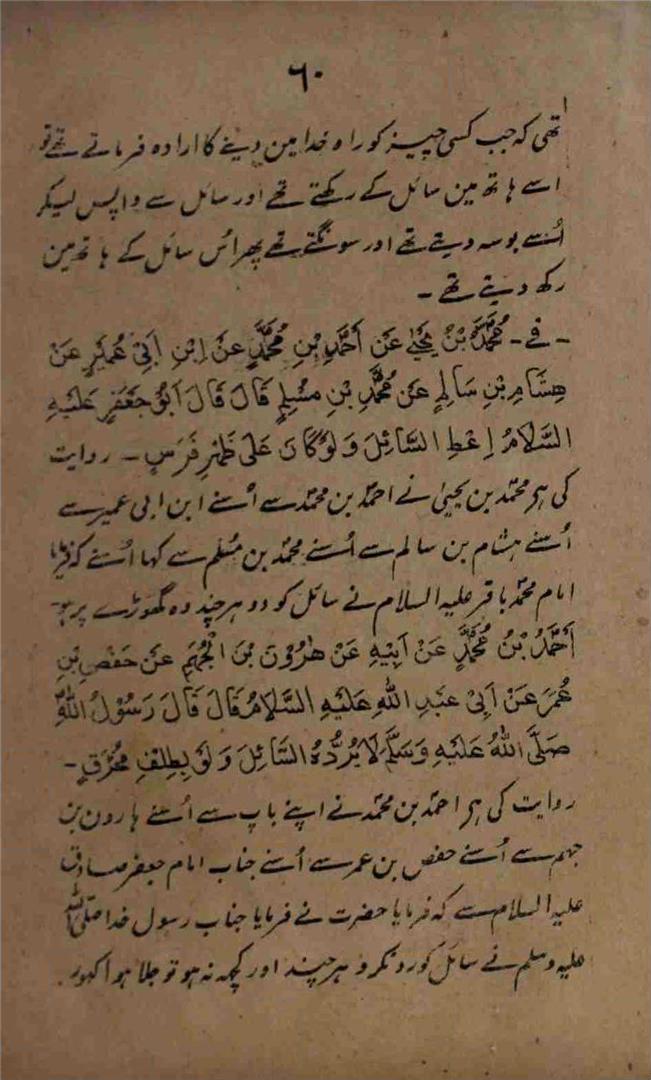 ٦٠
تھی کہ جب کسی چیز کو راہ خدا مین دینے کا ارادہ فرماتے تھے تو
اسے ہاتھ مین سائل کے رکھتے تھے اور سائل سے واپس لیکر
اُسے بوسہ دیتے تھے اور سونگتے تھے پھر اُس سائل کے ہاتھ مین
رکھ دیتے تھے ـ
ـ فے ـ مُحَمَّدُ بْنُ یَحْیٰی عَنْ اَحْمَدَ بْنِ مُحَمَّدٍ عَنْ اِبْنِ اَبِیْ عُمَیْرٍ عَنْ
هِشَامِ بْنِ سَالِمٍ عَنْ مُحَمَّدِ بْنِ مُسْلِمٍ قَالَ قَالَ اَبُوْ جَعْفَرٍ عَلَیْهِ
السَّلَامُ اِعْطِ السَّائِلَ وَ لَوْ کَانَ عَلٰی ظَهْرِ فَرَسٍ ـ روایت
کی ہر محمد بن یحییٰ نے احمد بن محمد سے اُسنے ابن ابی عمیر سے
اُسنے ہشام بن سالم سے اُسنے محمد بن مسلم سے کہا اُسنے کہ فرمایا
امام محمد باقر علیہ السلام نے سائل کو دو ہر چند وہ گھوڑے پر ہو
اَحْمَدُ بْنُ مُحَمَّدٍ عَنْ اَبِیْهِ عَنْ هٰرُوْنَ بْنِ الْجَهْمِ عَنْ حَفْصِ بْنِ
عُمَرَ عَنْ اَبِیْ عَبْدِ اللهِ عَلَیْهِ السَّلَامُ قَالَ قَالَ رَسُوْلُ اللهِ
صَلَّی اللهُ عَلَیْهِ وَسَلَّمَ لَا یُرُدُّهُ السَّائِلَ وَ لَوْ بِظِلْفٍ مُحْرَقٍ ـ
روایت کی ہر احمد بن محمد نے اپنے باپ سے اُسنے ہارون بن
جہم سے اُسنے حفص بن عمر سے اُسنے جناب امام جعفر صادق
علیہ السلام سے کہ فرمایا حضرت نے فرمایا جناب رسول خدا صلی اللہ
علیہ وسلم نے سائل کو رد نکرو ہر چند اور کچہ نہ ہو تو جلا ہوا کہور